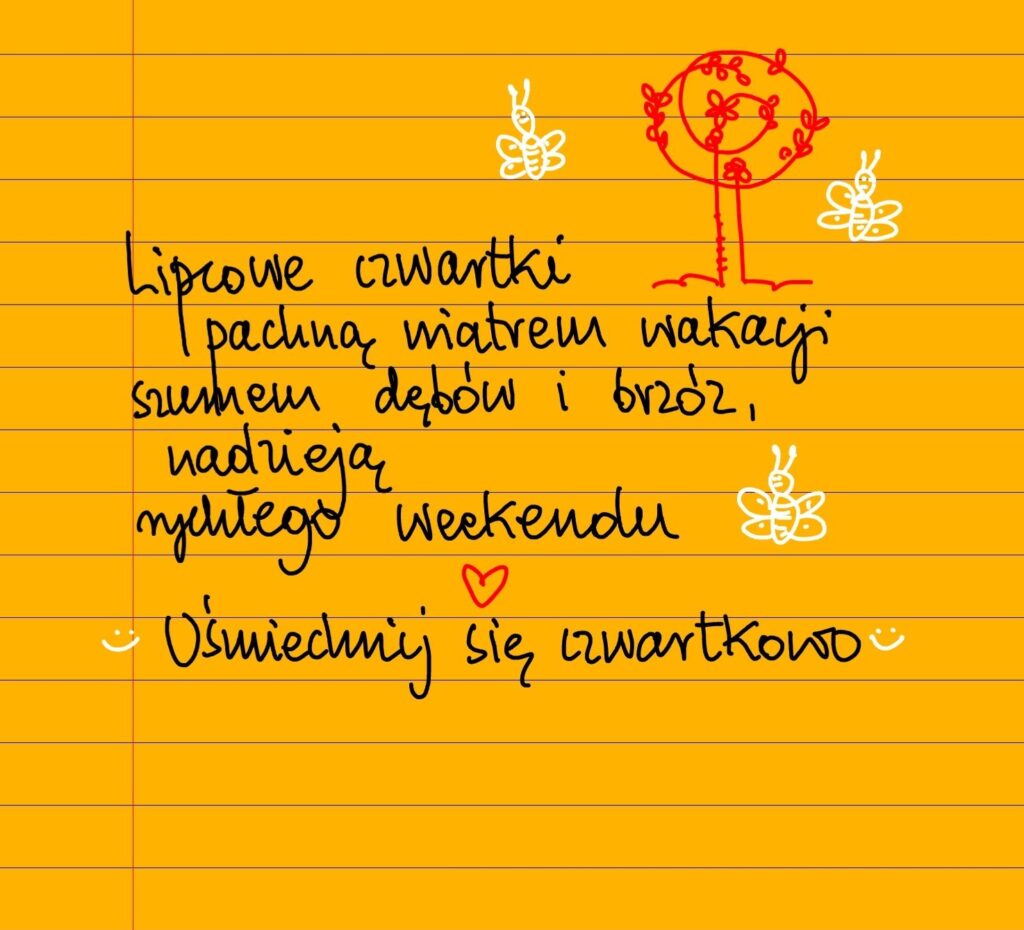 Lipcowe czwartki
pachną wiatrem wakacji
szumem dębów i brzóz,
nadzieją
rychłego weekendu
Uśmiechnij się czwartkowo